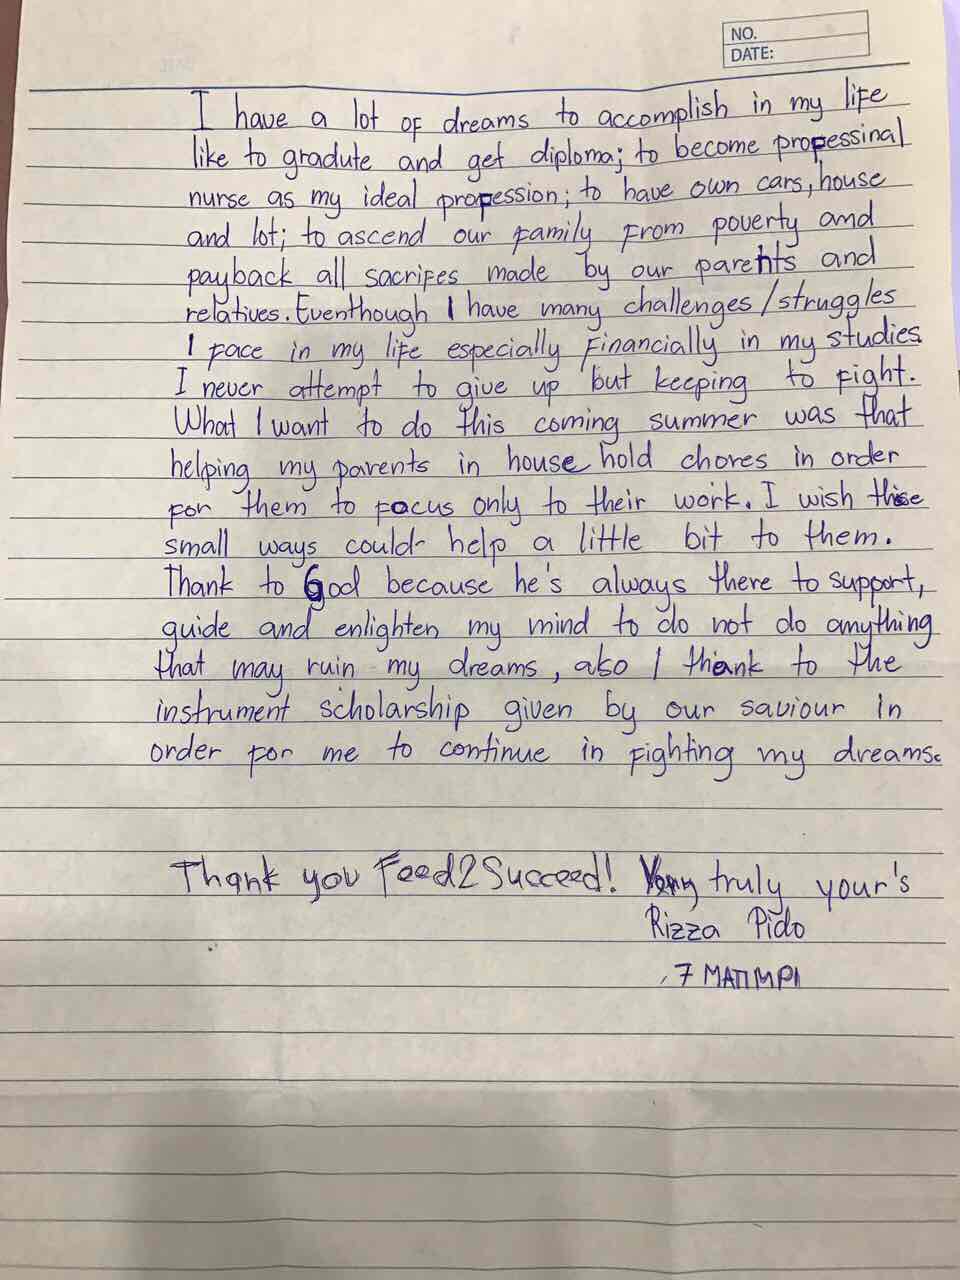 NO.
DATE:
I have a lot of dreams to accomplish in my life
like to gradute and get diploma; to become propessinal
nurse as my ideal propession; to have own cars, house
and lot; to ascend our family from poverty and
payback all sacrifes made by our parents and
relatives. Eventhough I have many challenges/struggles
I face in my life especially financially in my studies
I never attempt to give up but keeping to fight.
What I want to do this coming summer was that
helping my parents in house hold chores in order
for them to focus only to their work. I wish these
small ways could help a little bit to them.
Thank to God because he's always there to support,
guide and enlighten my mind to do not do anything
that may ruin my dreams, also I thank to the
instrument scholarship given by our saviour in
order for me to continue in fighting my dreams.
Thank you Feed2Succeed! Very truly your's
Rizza Pido
7